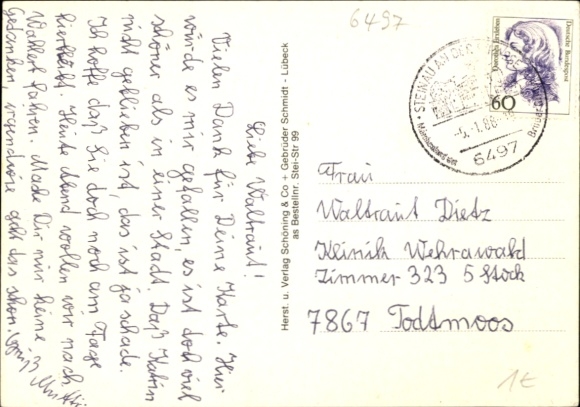 6497
Deutsche Bundespost
Dorothea Erxleben
60
STEINAU AN DER
-4.1.88
6497
Liebe Waltraut!
Vielen Dank für Deine Karte. Hier
würde es mir gefallen, es ist doch viel
schöner als in einer Stadt. Daß Katrin
nicht geblieben ist, das ist ja schade.
Ich hoffe daß Sie doch noch am Tage
hierbleibt. Heute Abend wollen wir nach
Wallert fahren. Mache Dir nur keine
Gedanken, irgendwie geht das schon. Gruß
Herst. u. Verlag Schöning & Co + Gebrüder Schmidt - Lübeck
as Bestellnr. Stei-Str 99
Frau
Waltraut Dietz
Klinik Wehrawald
Zimmer 323 5 Stock
7867 Todtmoos
1€